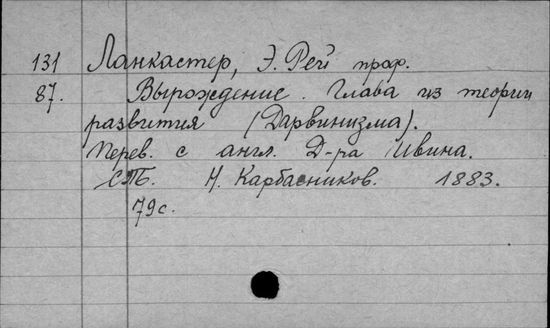 131 Ланкастер, Э. Рей проф.
87. Вырождение. Глава из теории
развития (Дарвинизма).
Перев. с англ. Д-ра Ивина.
СПб. Н. Карбасников. 1883.
79 с.